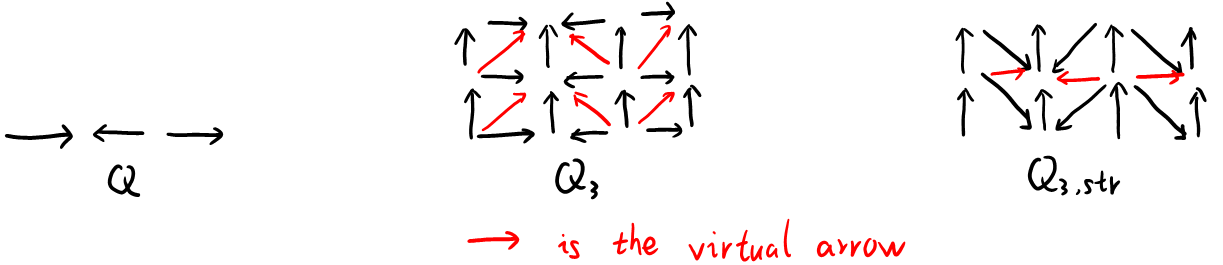 Q Q₃ Q₃,str
→ is the virtual arrow